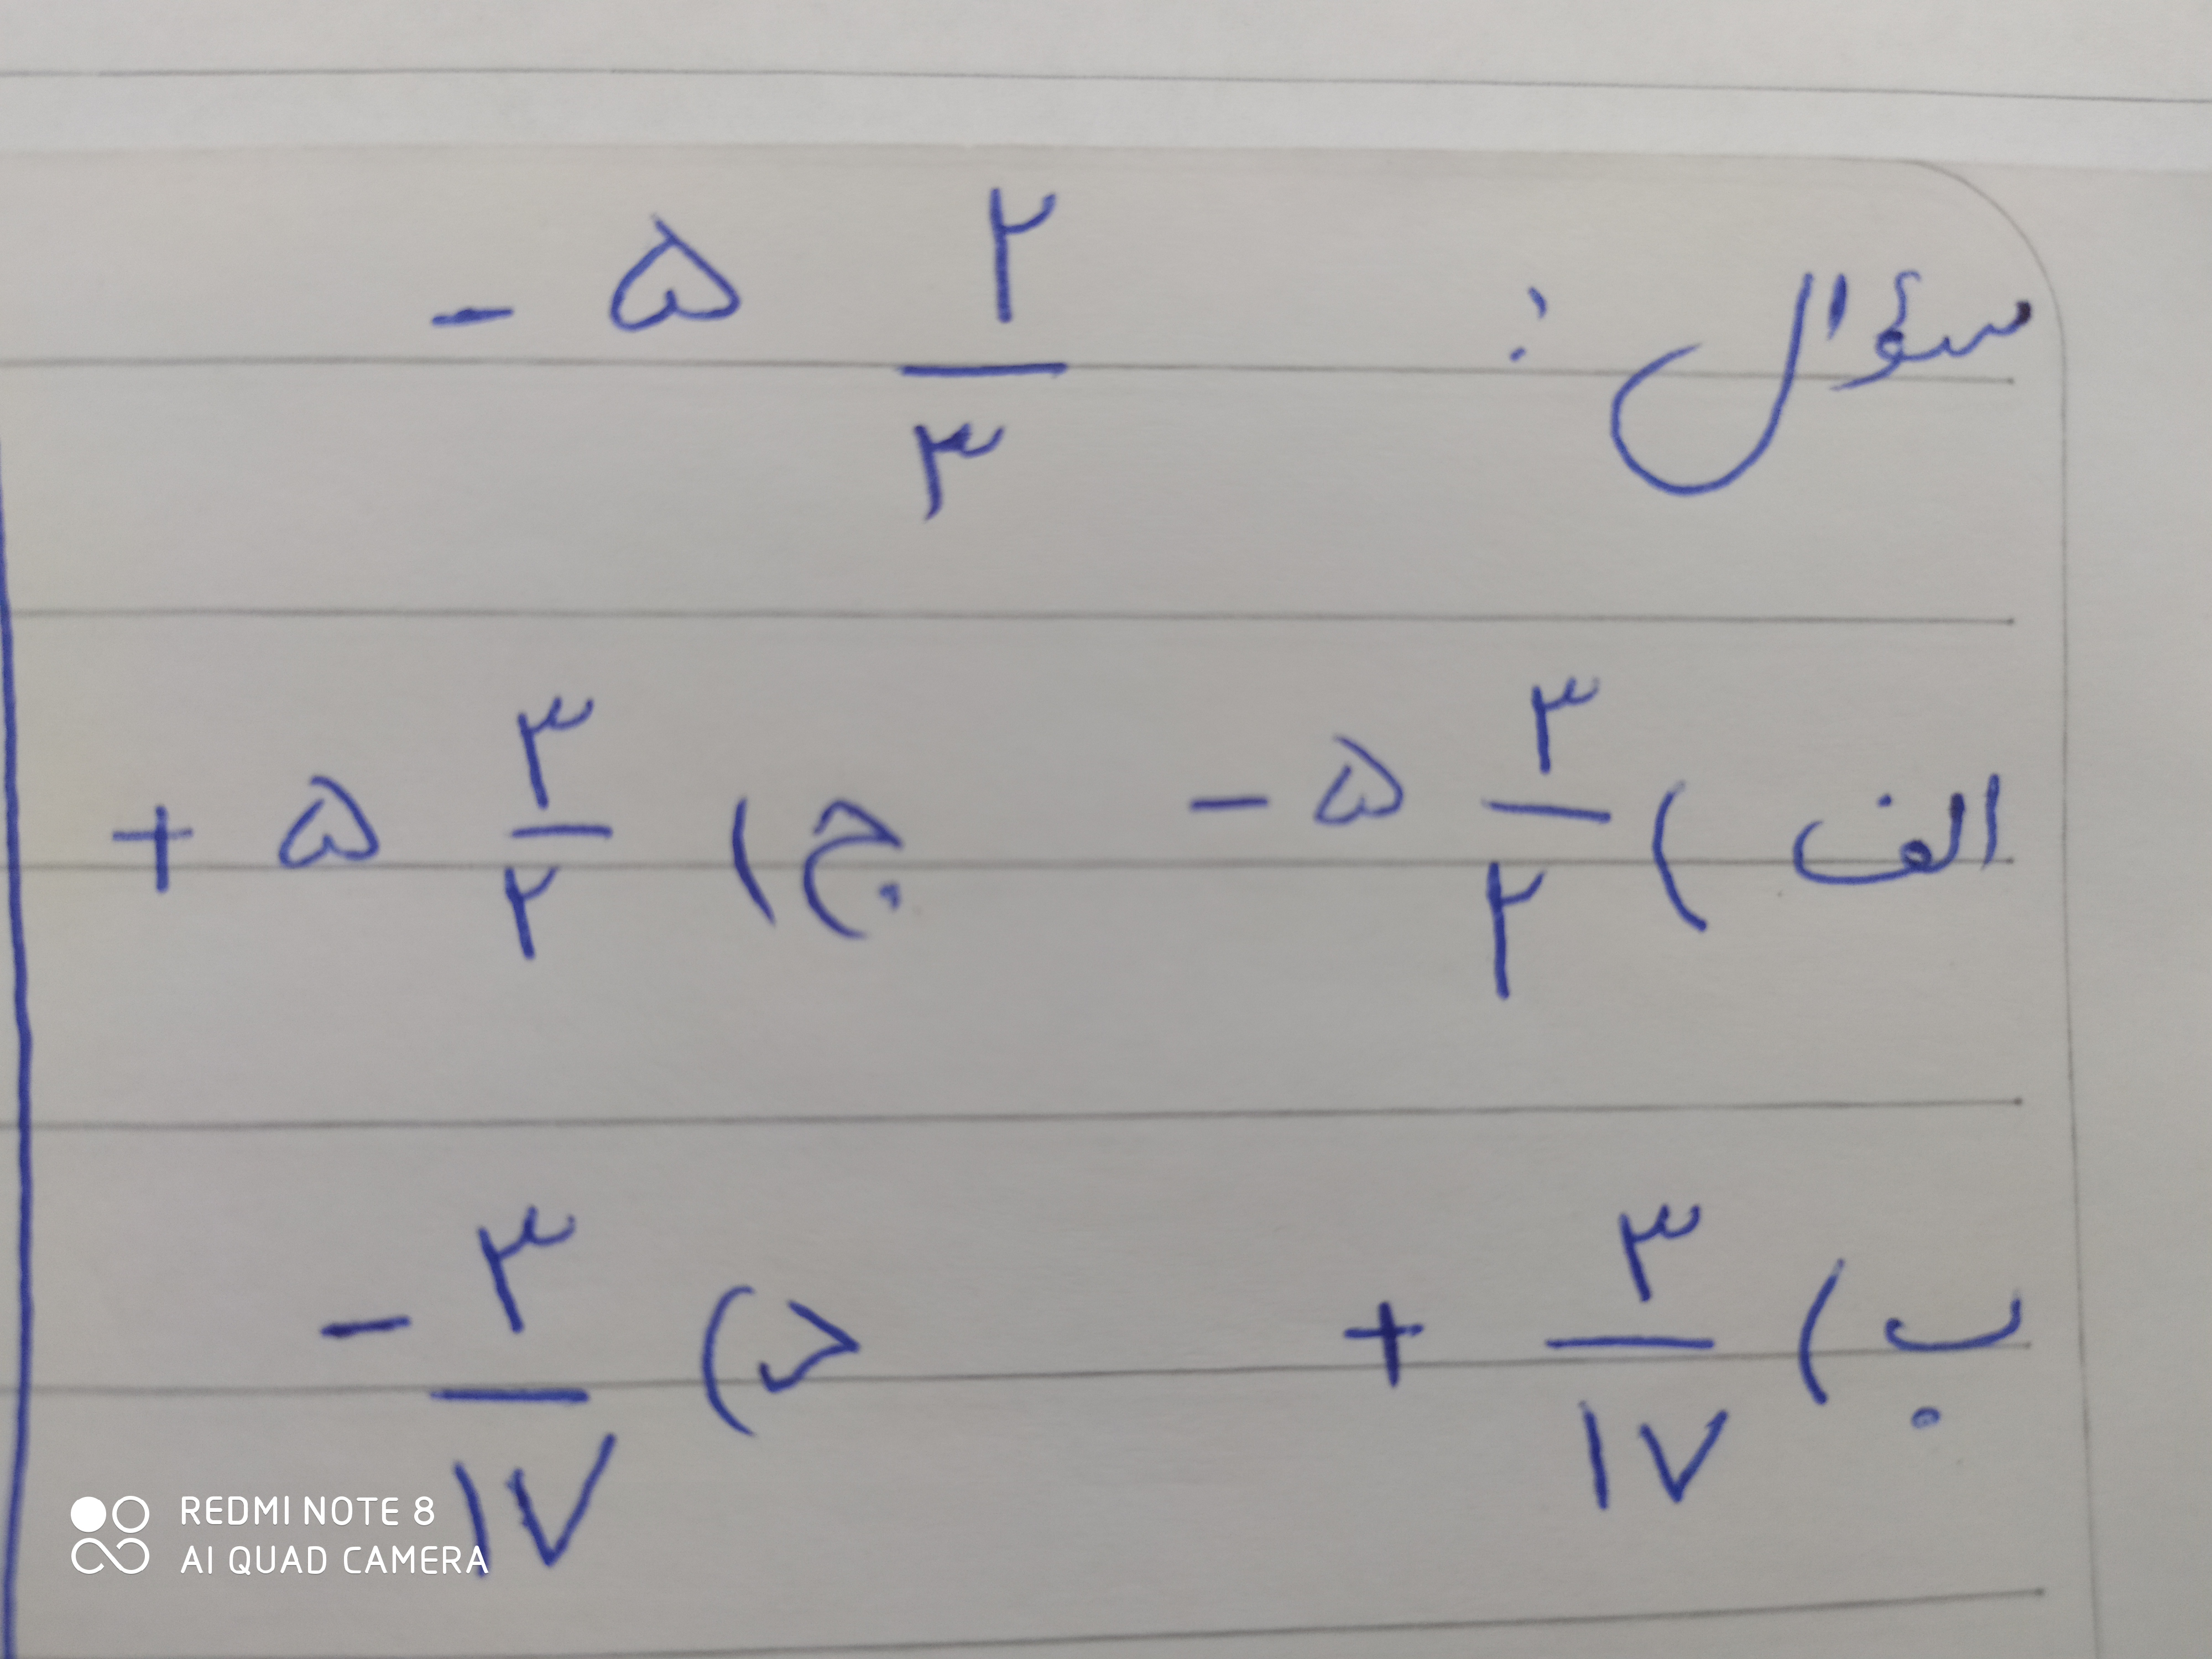 سؤال : - ۵ ۲/۳
الف ) - ۵ ۳/۲ ج ) + ۵ ۳/۲
ب ) + ۳/۱۷ د ) - ۳/۱۷
REDMI NOTE 8
AI QUAD CAMERA